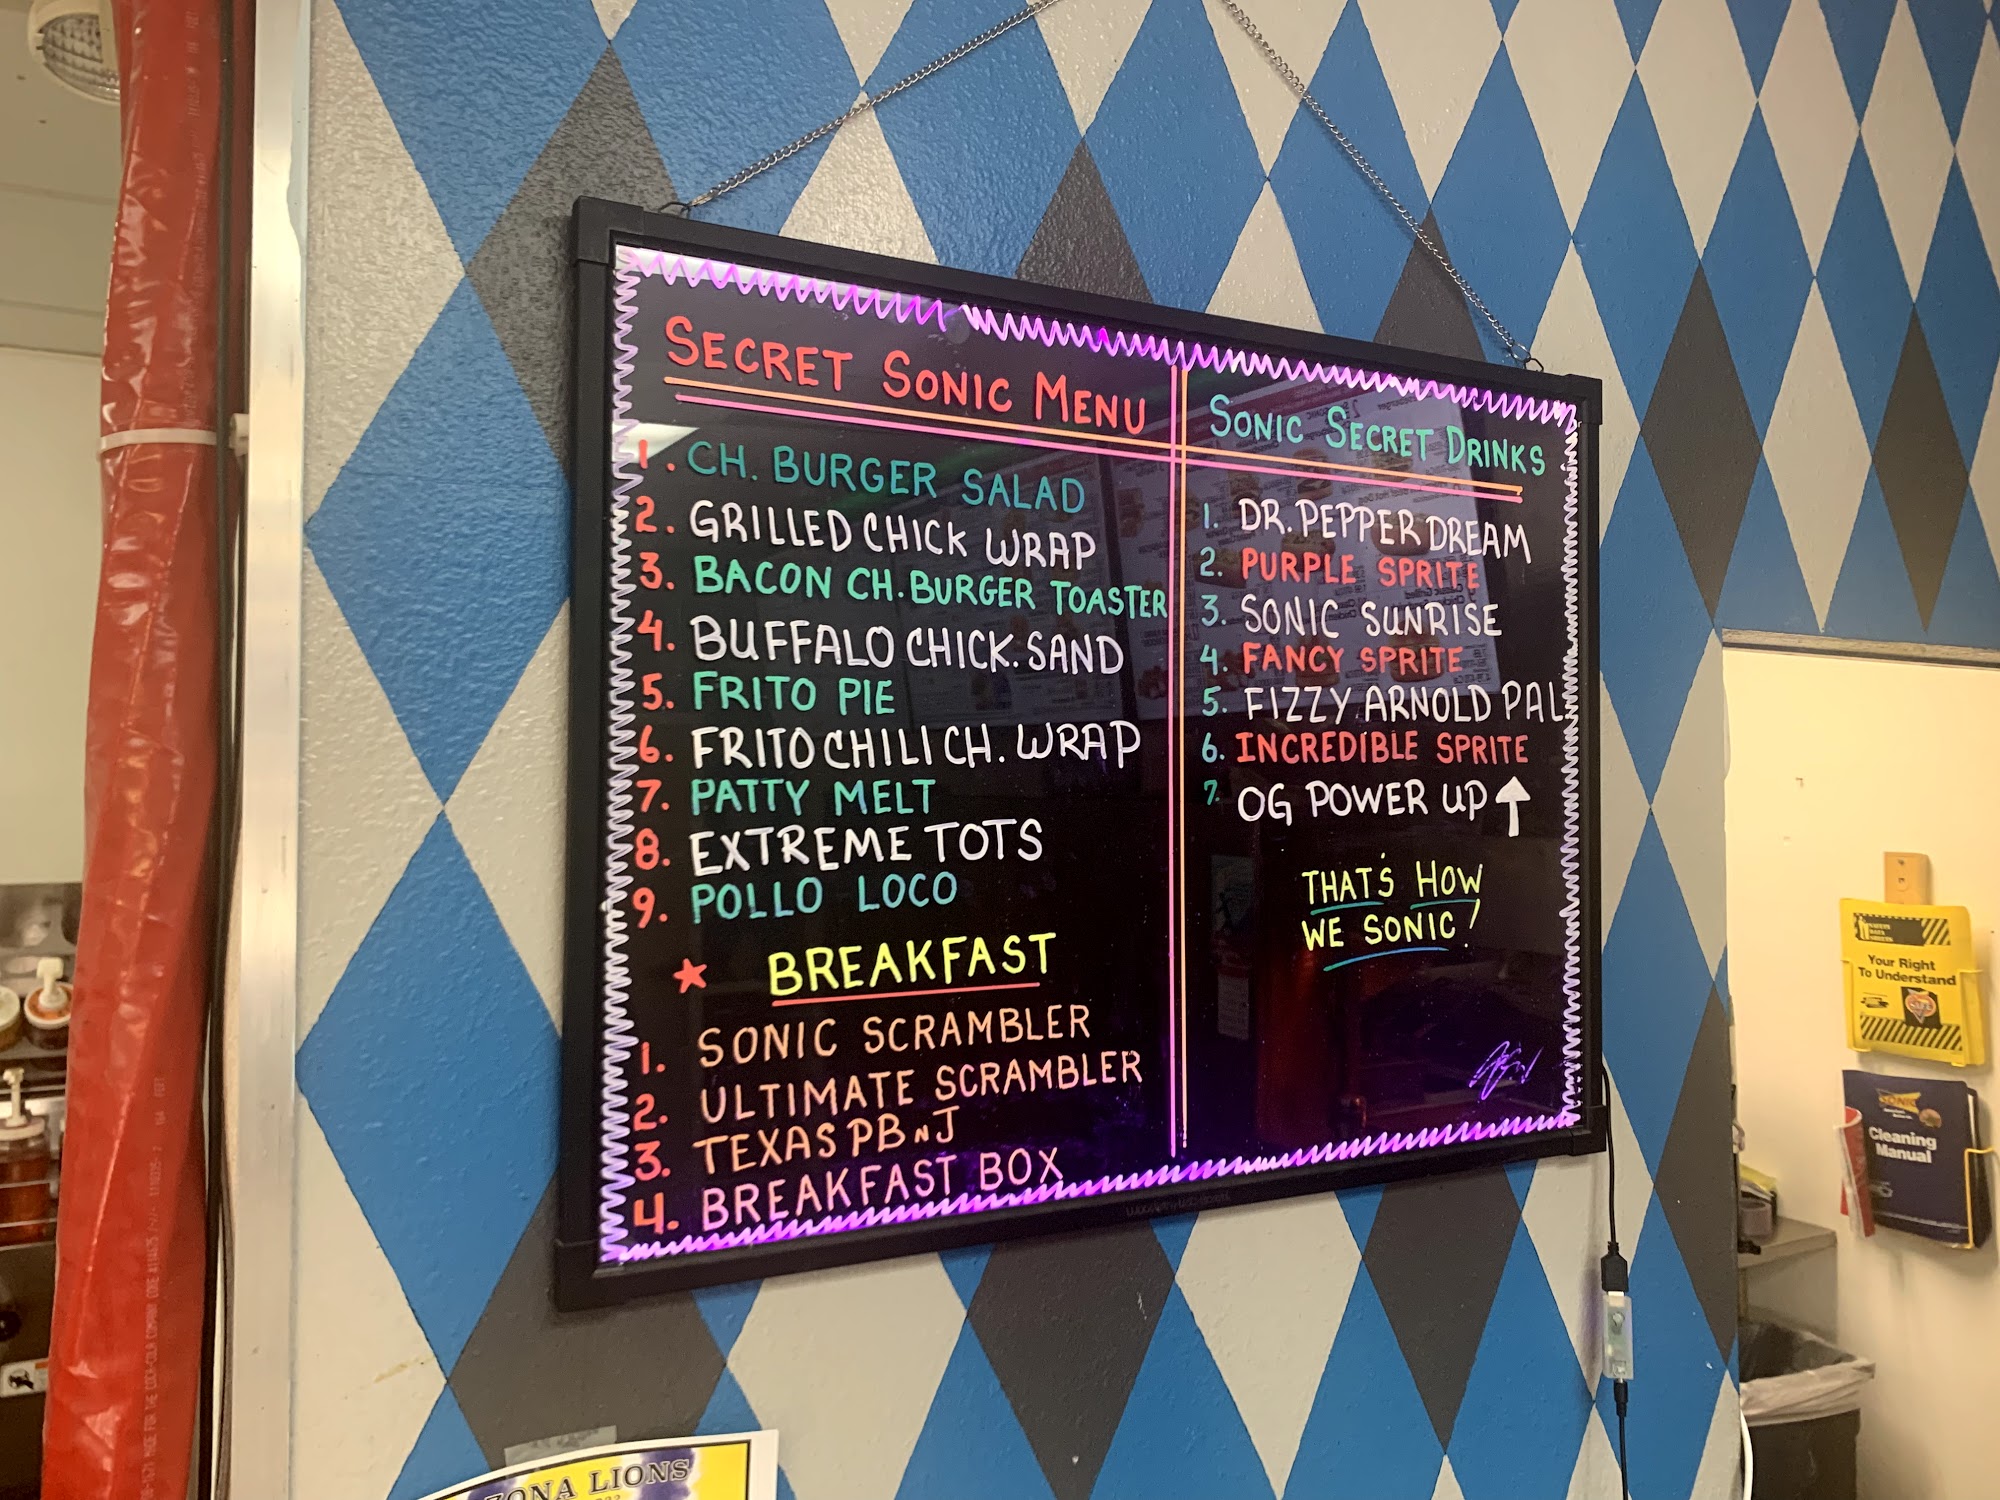 SECRET SONIC MENU
1. CH. BURGER SALAD
2. GRILLED CHICK WRAP
3. BACON CH. BURGER TOASTER
4. BUFFALO CHICK. SAND
5. FRITO PIE
6. FRITO CHILI CH. WRAP
7. PATTY MELT
8. EXTREME TOTS
9. POLLO LOCO
BREAKFAST
1. SONIC SCRAMBLER
2. ULTIMATE SCRAMBLER
3. TEXAS PB N J
4. BREAKFAST BOX
SONIC SECRET DRINKS
1. DR. PEPPER DREAM
2. PURPLE SPRITE
3. SONIC SUNRISE
4. FANCY SPRITE
5. FIZZY ARNOLD PAL
6. INCREDIBLE SPRITE
7. OG POWER UP
THAT'S HOW
WE SONIC!
Your Right
To Understand
SONIC
Cleaning
Manual
LIONS